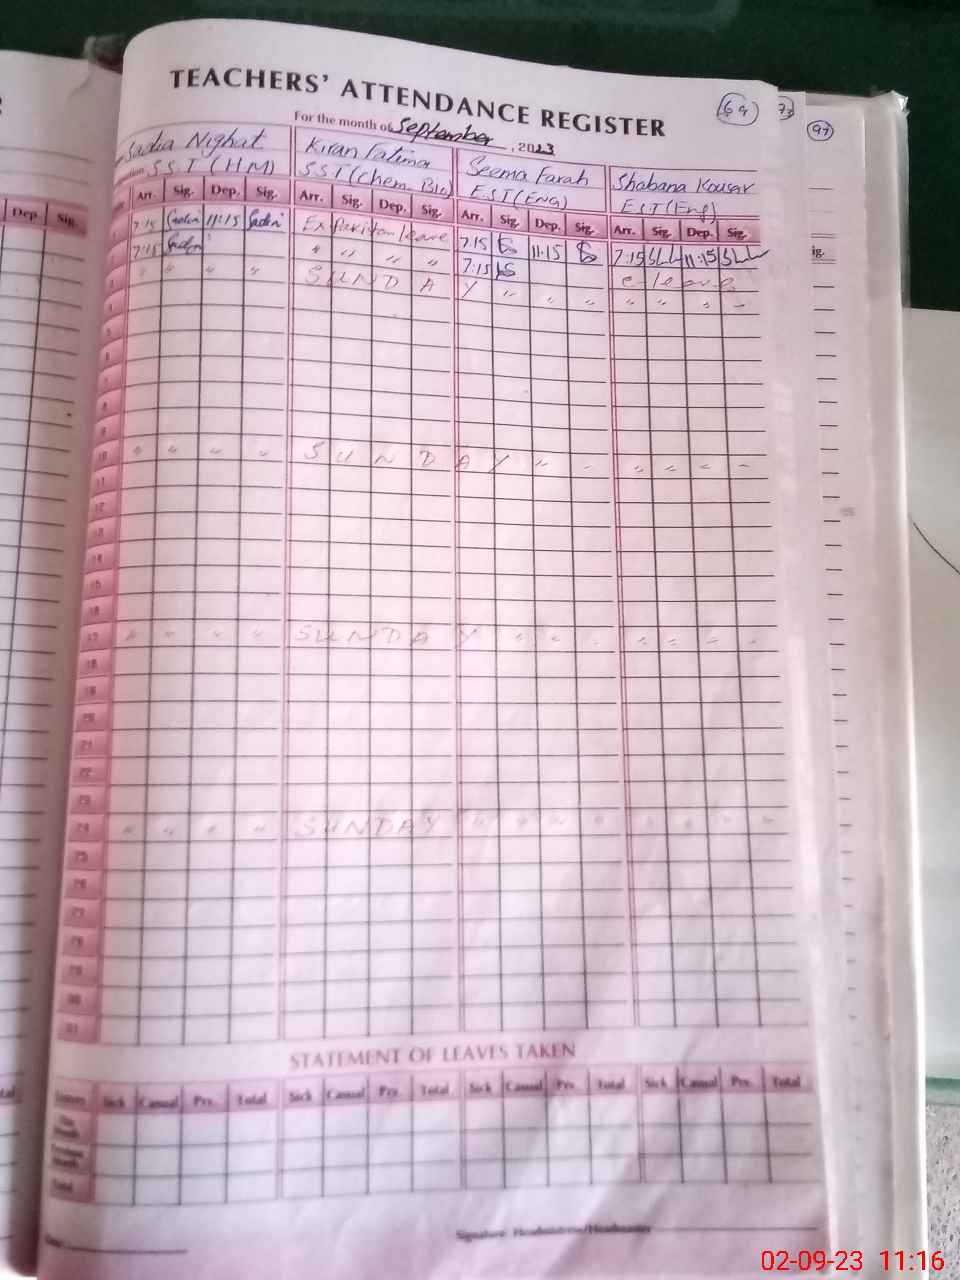 TEACHERS' ATTENDANCE REGISTER
69 73 97
For the month of September, 2023
Sadia Nighat Kiran Fatima Seema Farah Shabana Kousar
SST (HM) SST (Chem. Bio) EST (ENG) EST (Eng)
Dep. Sig. Arr. Sig. Dep. Sig. Arr. Sig. Dep. Sig. Arr. Sig. Dep. Sig. Arr. Sig. Dep. Sig.
7:15 Sadia 11:15 Sadia Ex Pakistan leave 7:15 11:15 7:15 11:15
7:15 Sadia " " " " 7:15 e-leave
" " " " SUNDAY " " " " " " "
4
5
6
7
8
9
10 " " " " SUNDAY " - " " " -
11
12
13
14
15
16
17 " " " " SUNDAY " " - " " - -
18
19
20
21
22
23
24 " " " " SUNDAY " " " " " " " "
25
26
27
28
29
30
31
STATEMENT OF LEAVES TAKEN
Leaves Sick Casual Prv. Total Sick Casual Prv. Total Sick Casual Prv. Total Sick Casual Prv. Total
Total
Signature Headmistress/Headmaster
02-09-23 11:16